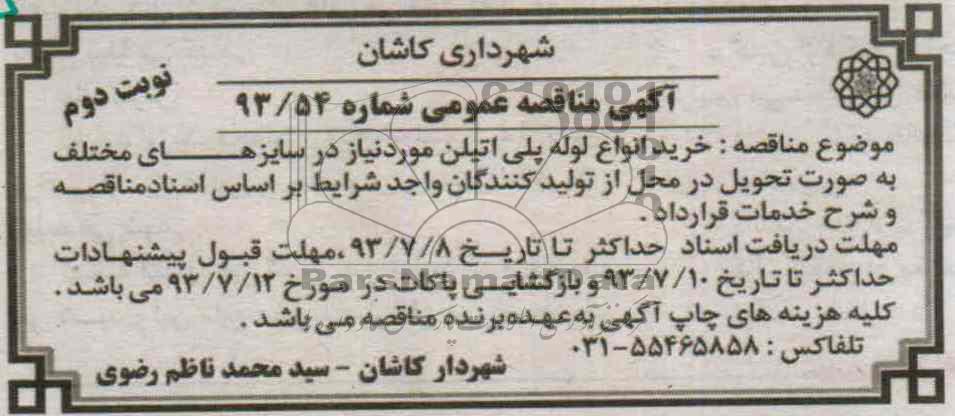 شهرداری کاشان
نوبت دوم
آگهی مناقصه عمومی شماره ۹۳/۵۴
موضوع مناقصه : خرید انواع لوله پلی اتیلن موردنیاز در سایزهای مختلف
به صورت تحویل در محل از تولید کنندگان واجد شرایط بر اساس اسناد مناقصه
و شرح خدمات قرارداد .
مهلت دریافت اسناد حداکثر تا تاریخ ۹۳/۷/۸ ،مهلت قبول پیشنهادات
حداکثر تا تاریخ ۹۳/۷/۱۰ و بازگشایی پاکات در مورخ ۹۳/۷/۱۲ می باشد .
کلیه هزینه های چاپ آگهی به عهده برنده مناقصه می باشد .
تلفاکس : ۵۵۴۶۵۸۵۸-۰۳۱
شهردار کاشان - سید محمد ناظم رضوی
ParsNamadData